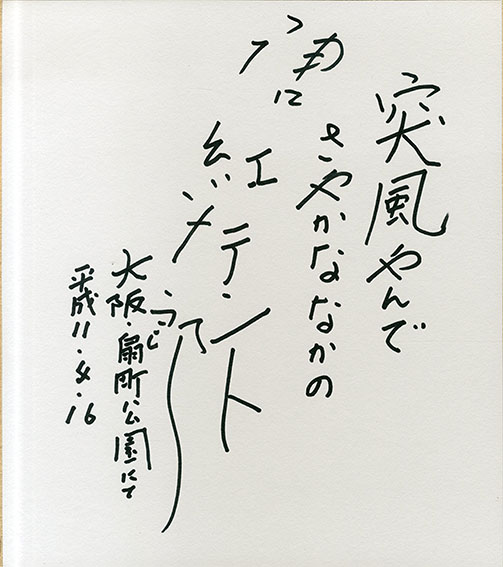 突風やんで
さやかななかの
紅テント
大阪・扇町公園にて
平成11.4.16